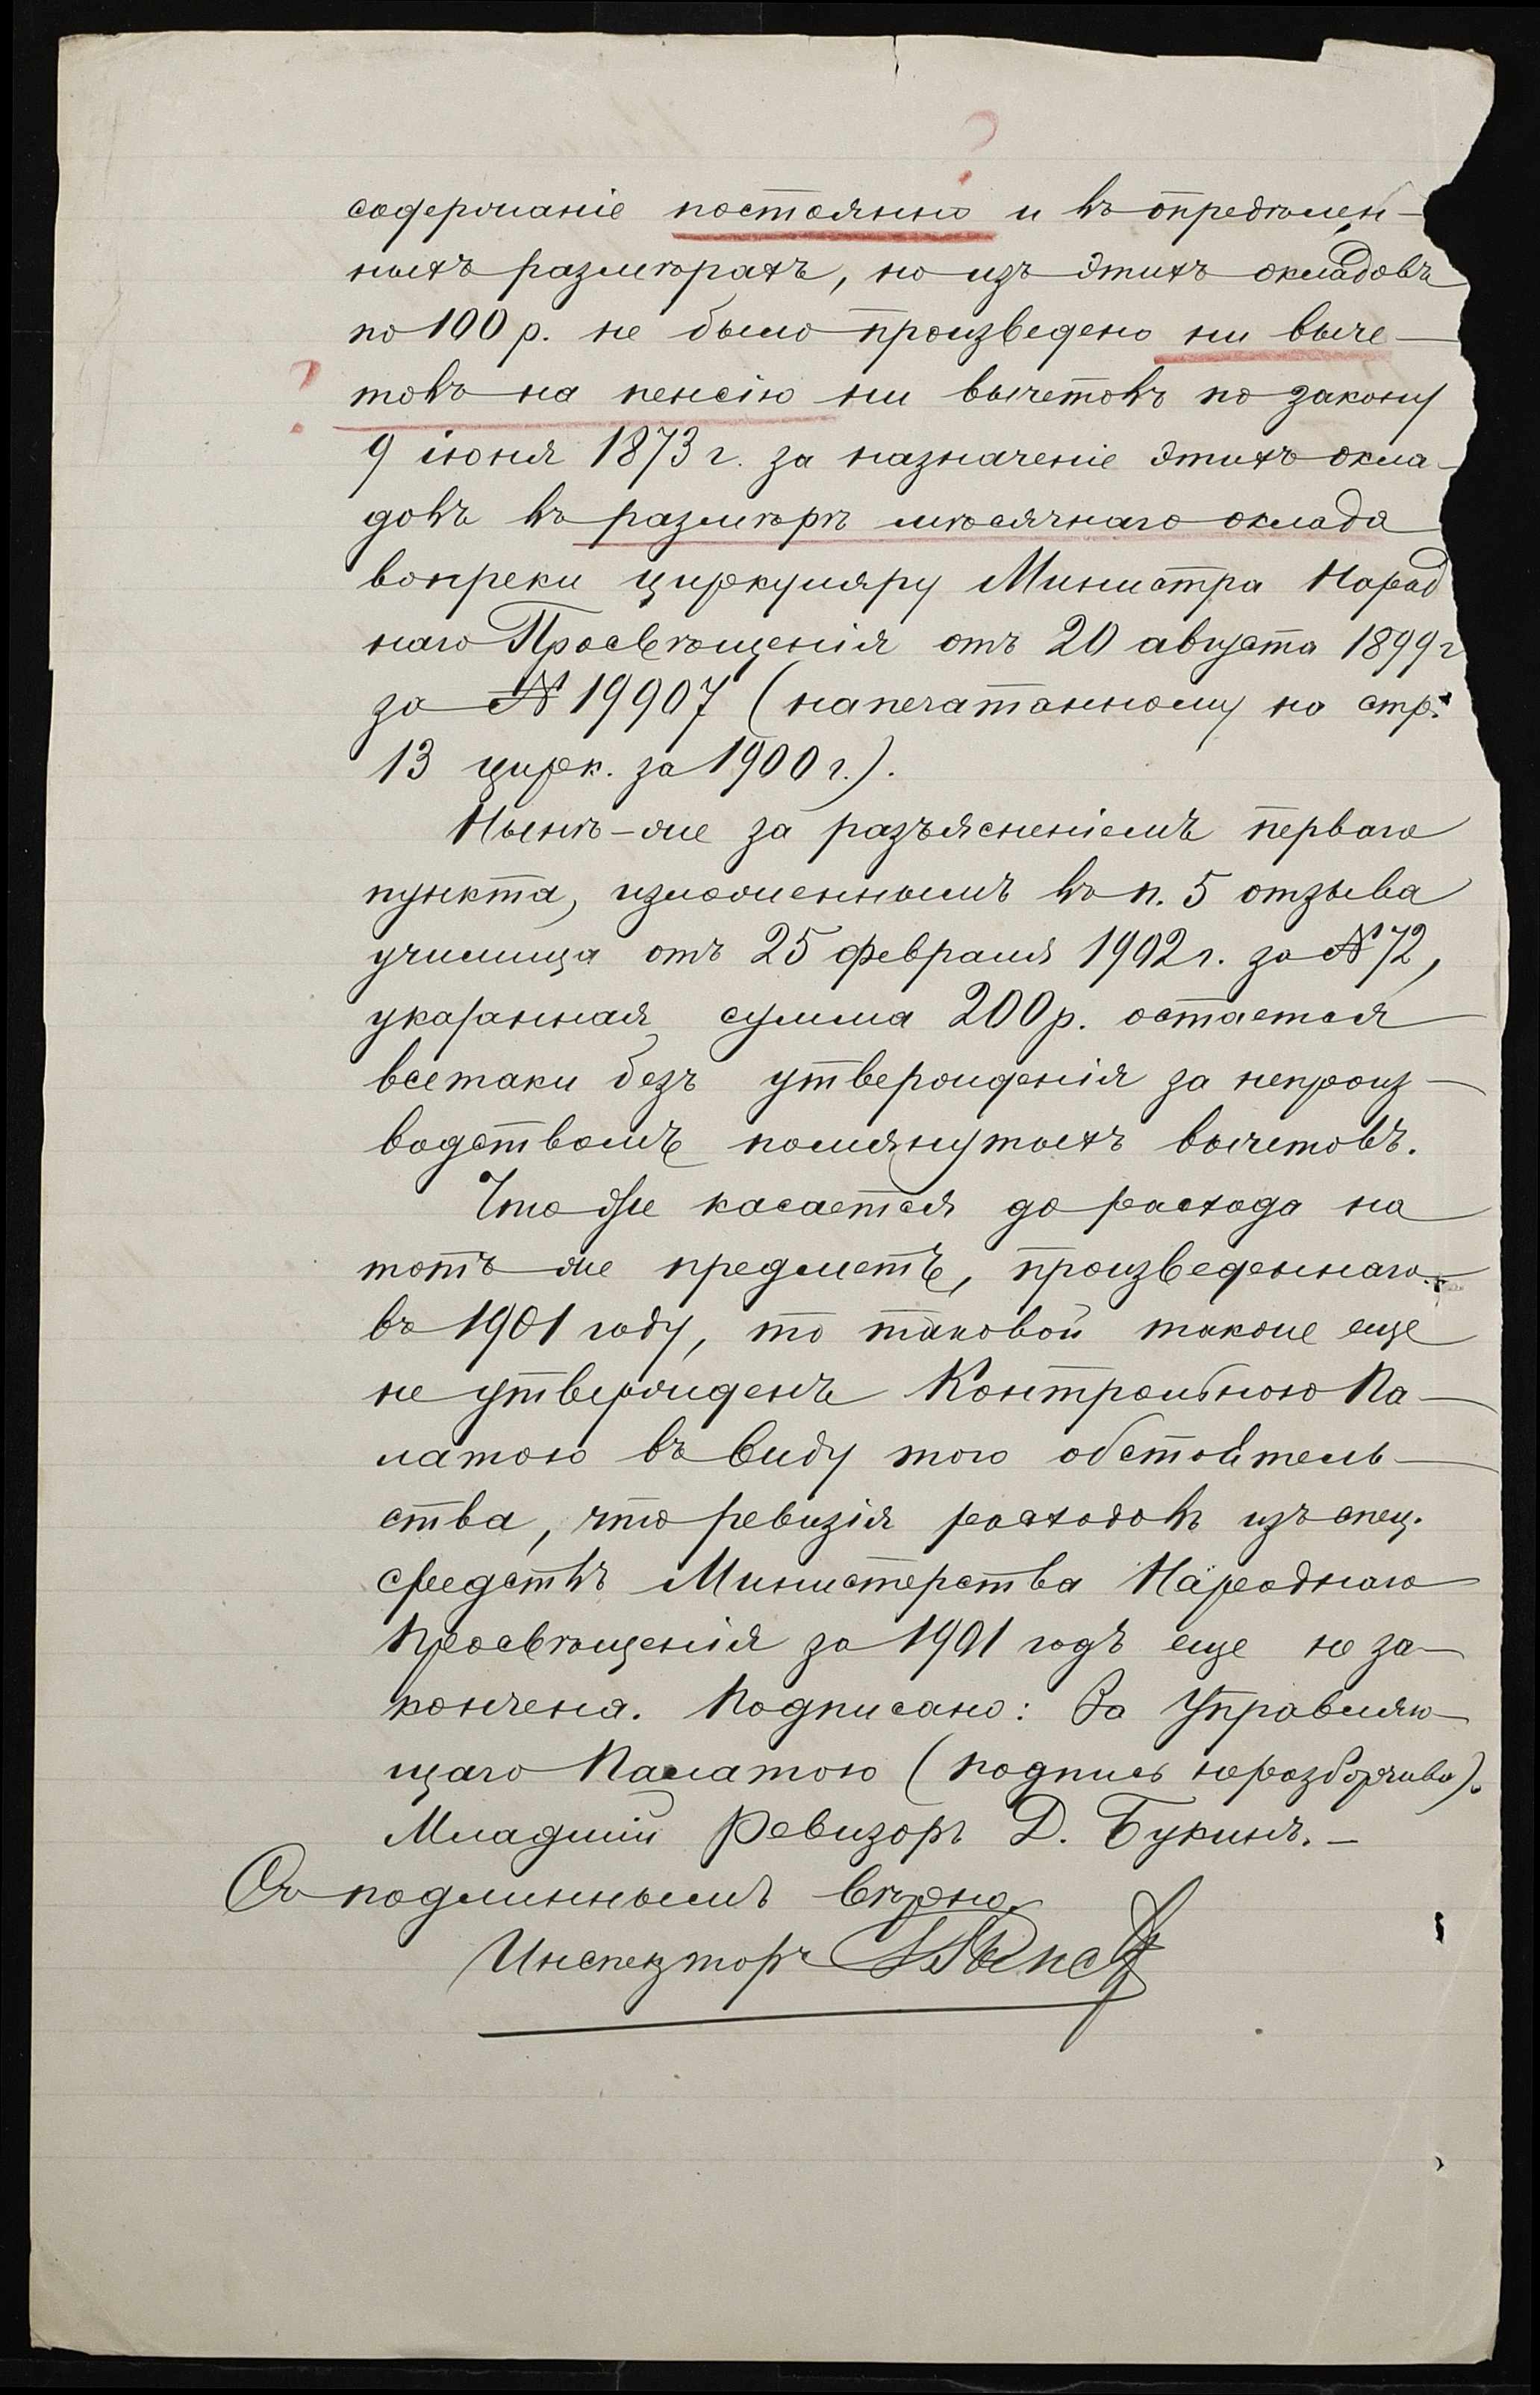 содержаніе постоянно и въ опредѣлен-
ныхъ размѣрахъ, но изъ этихъ окладовъ
по 100 р. не было произведено ни выче-
товъ на пенсію ни вычетовъ по закону
9 іюня 1873 г. за назначеніе этихъ окла-
довъ въ размѣрѣ мѣсячнаго оклада
вопреки циркуляру Министра Народ
наго Просвѣщенія отъ 20 августа 1899 г
за № 19907 (напечатанному на стр.
13 цирк. за 1900 г.).
Нынѣ-же за разъясненіемъ перваго
пункта, изложеннымъ въ п. 5 отзыва
училища отъ 25 февраля 1902 г. за № 72,
указанная сумма 200 р. остается
всетаки безъ утвержденія за непроиз-
водствомъ помянутыхъ вычетовъ.
Что же касается до расхода на
тотъ же предметъ, произведеннаго
въ 1901 году, то таковой также еще
не утвержденъ Контрольною Па-
латою въ виду того обстоятель-
ства, что ревизія расходовъ изъ спец.
средствъ Министерства Народнаго
Просвѣщенія за 1901 годъ еще не за-
кончена. Подписано: За Управляю-
щаго Палатою (подпись неразборчива).
Младшій Ревизоръ Д. Букинъ. -
Съ подлиннымъ вѣрно.
Инспекторъ